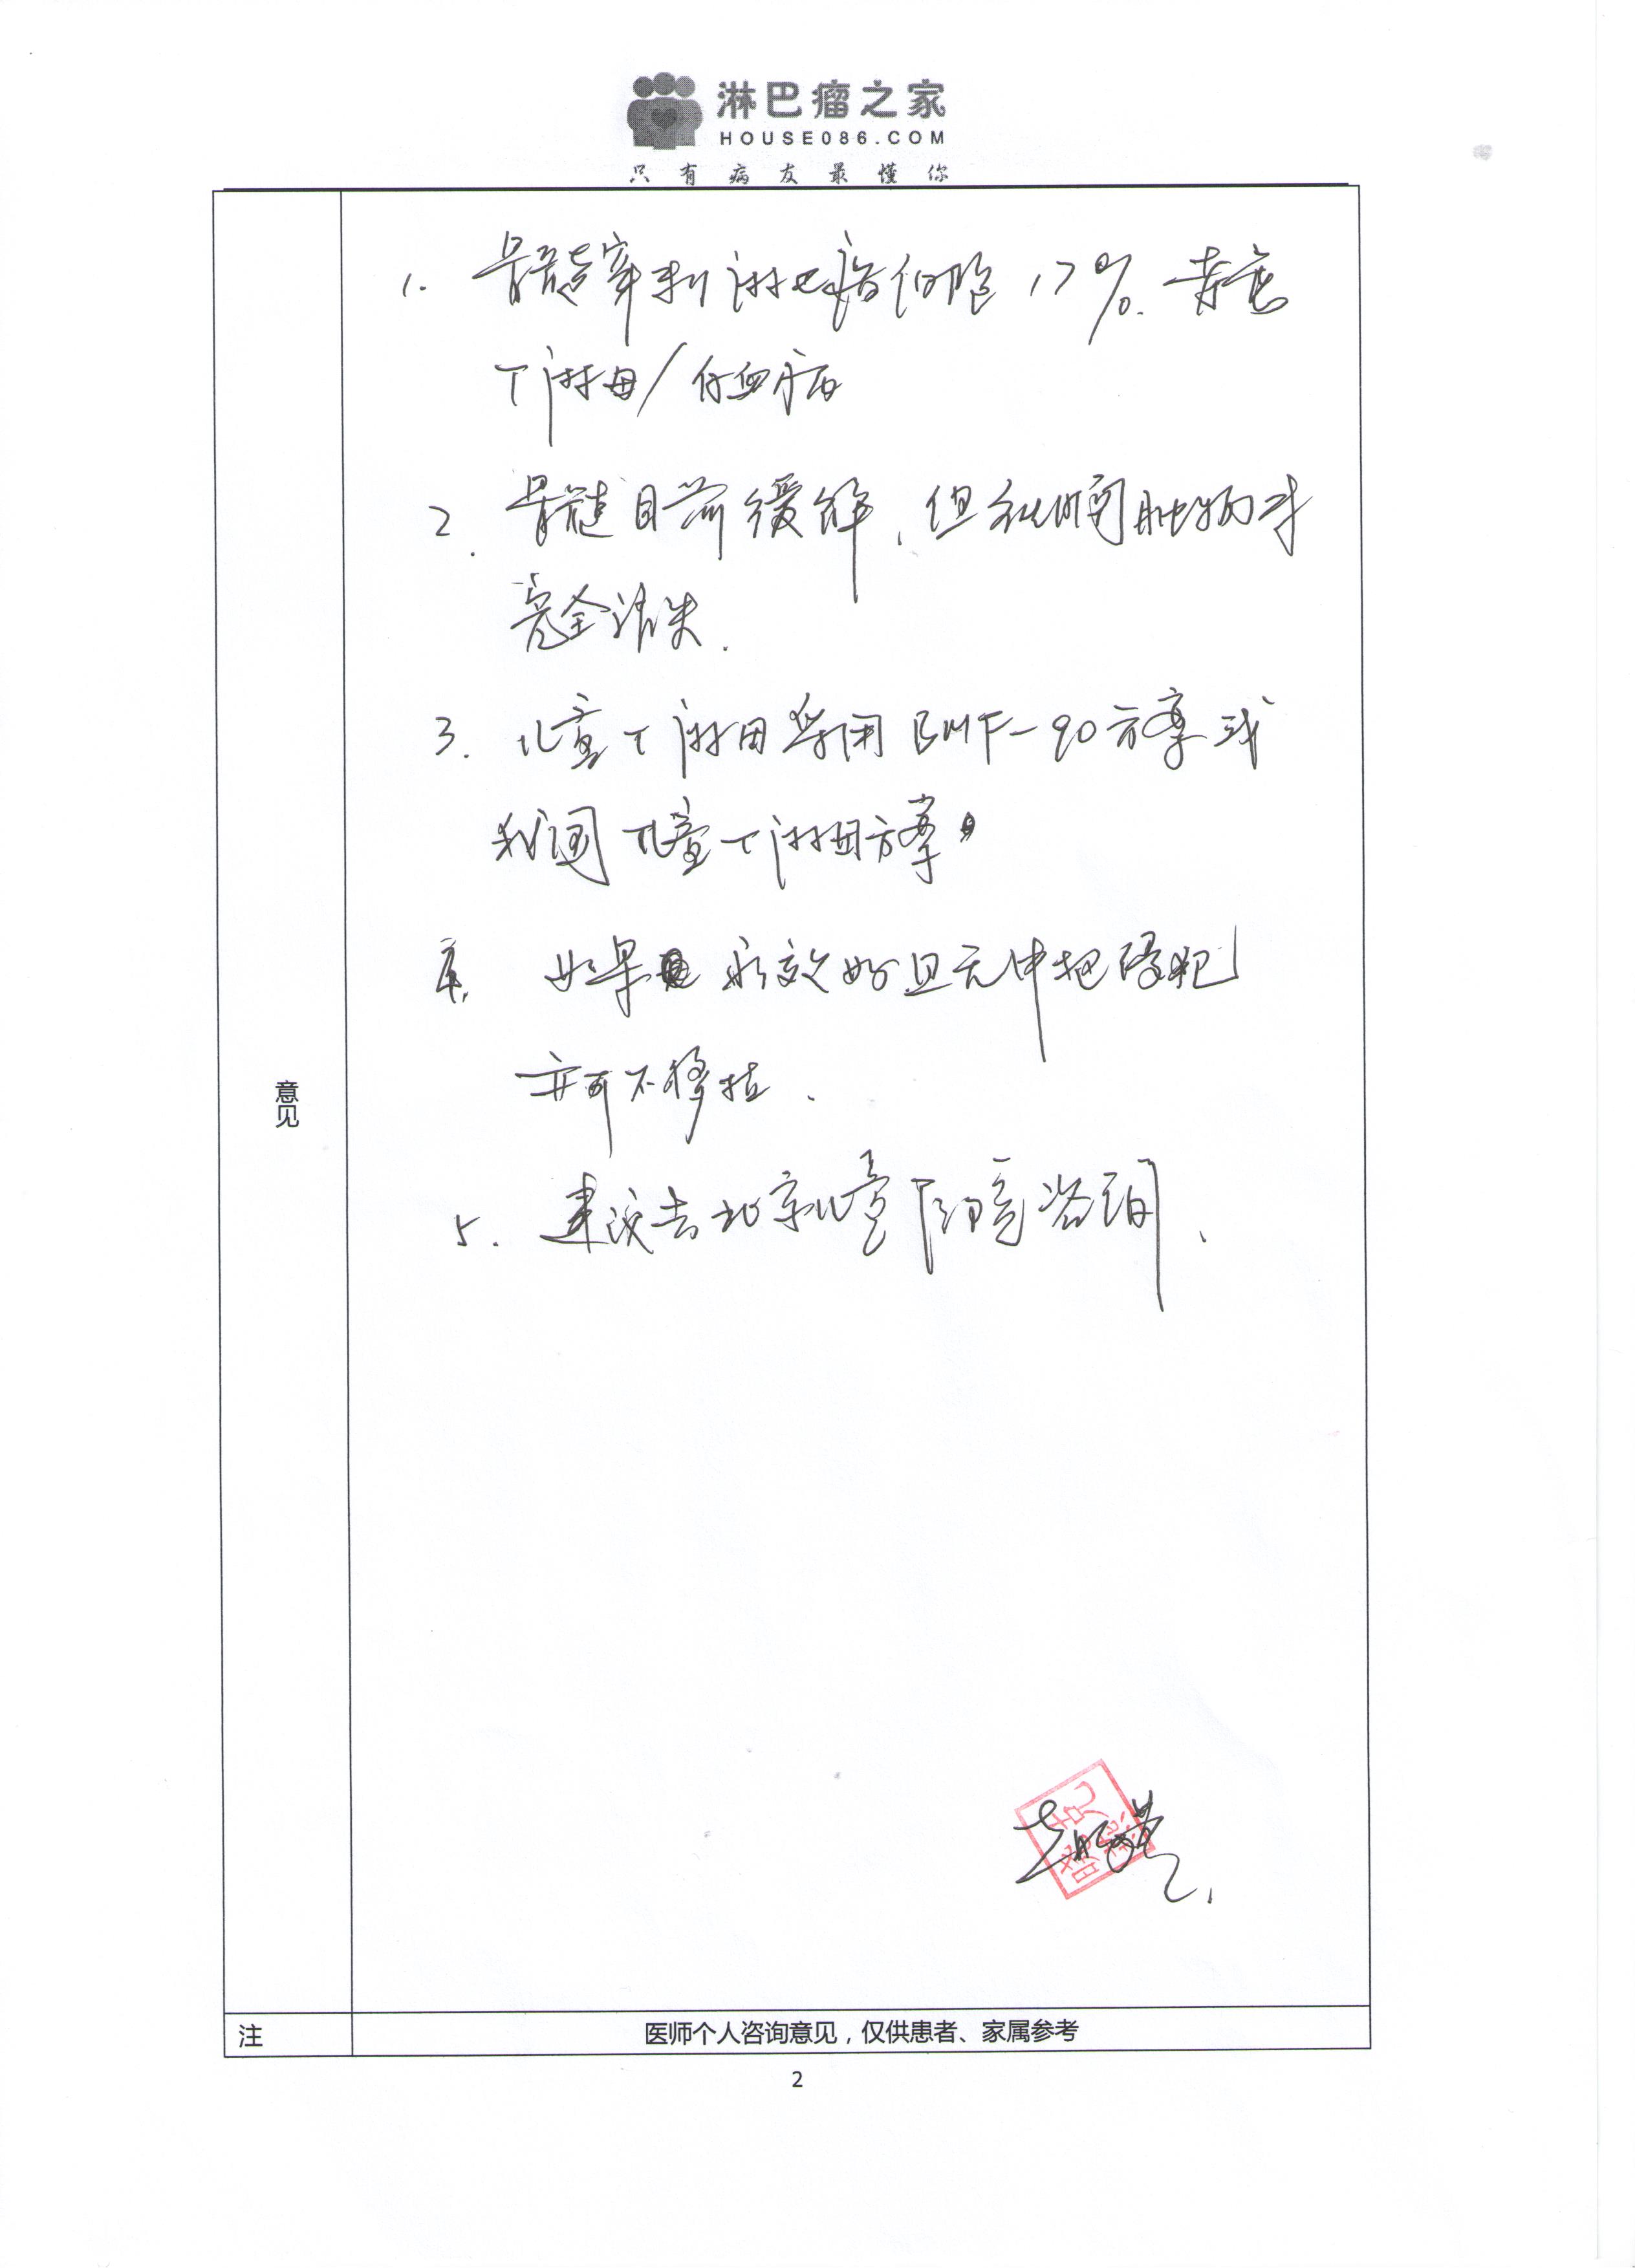 淋巴瘤之家
HOUSE086.COM
只有病友最懂你
1. 骨髓穿刺淋巴瘤细胞17%. 考虑
T淋母/白血病
2. 骨髓目前缓解, 但纵隔肿物未
完全消失.
3. 儿童T淋母采用BMF-90方案或
我国儿童T淋母方案
4. 如果 疗效好且无中枢侵犯
亦可不移植.
5. 建议去北京儿童医院咨询.
意见
注
医师个人咨询意见，仅供患者、家属参考
2